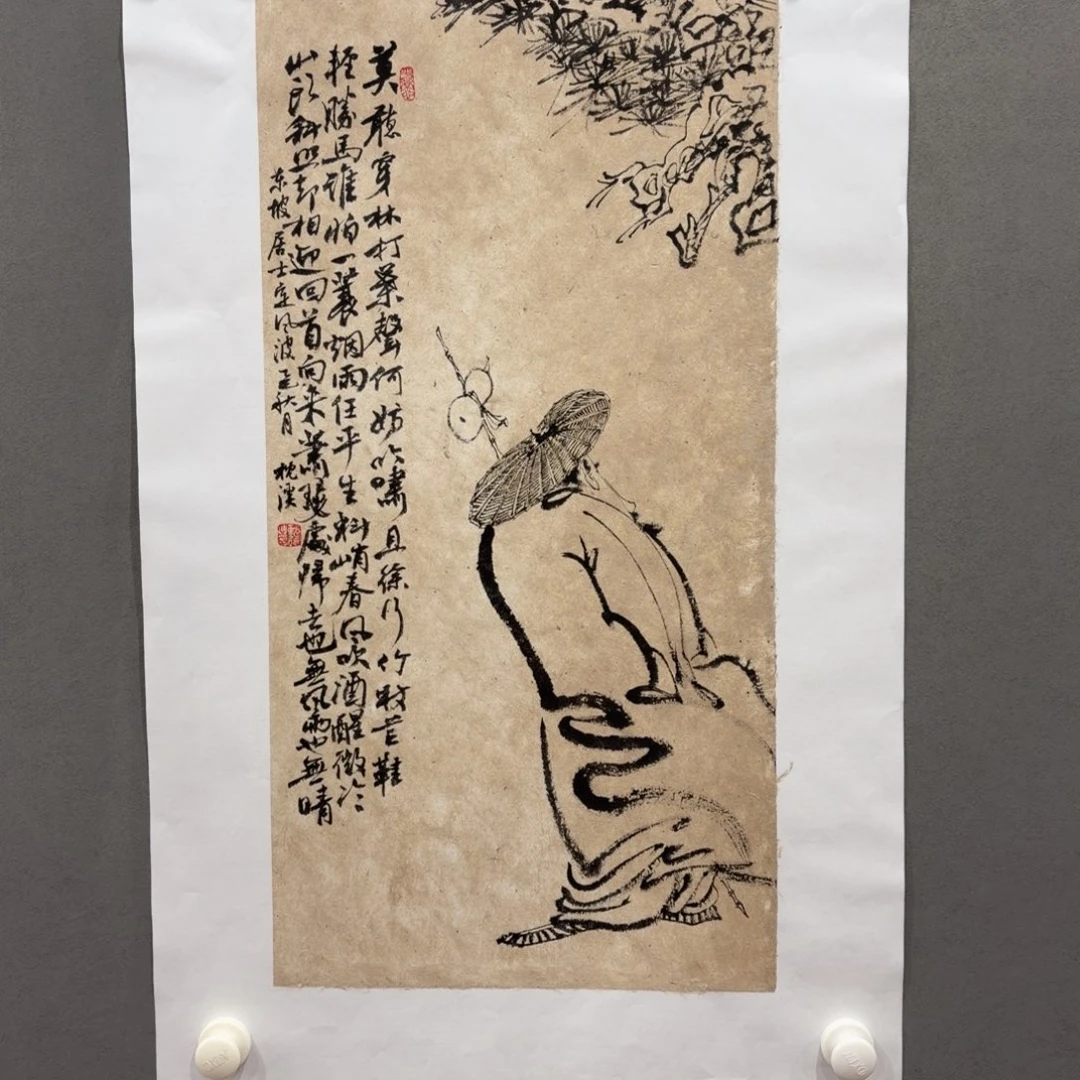 莫聽穿林打葉聲何妨吟嘯且徐行竹杖芒鞋
輕勝馬誰怕一蓑烟雨任平生料峭春风吹酒醒微冷
山头斜照却相迎回首向来蕭瑟處歸去也無风雨也無晴
东坡居士定风波 秋月 枕溪